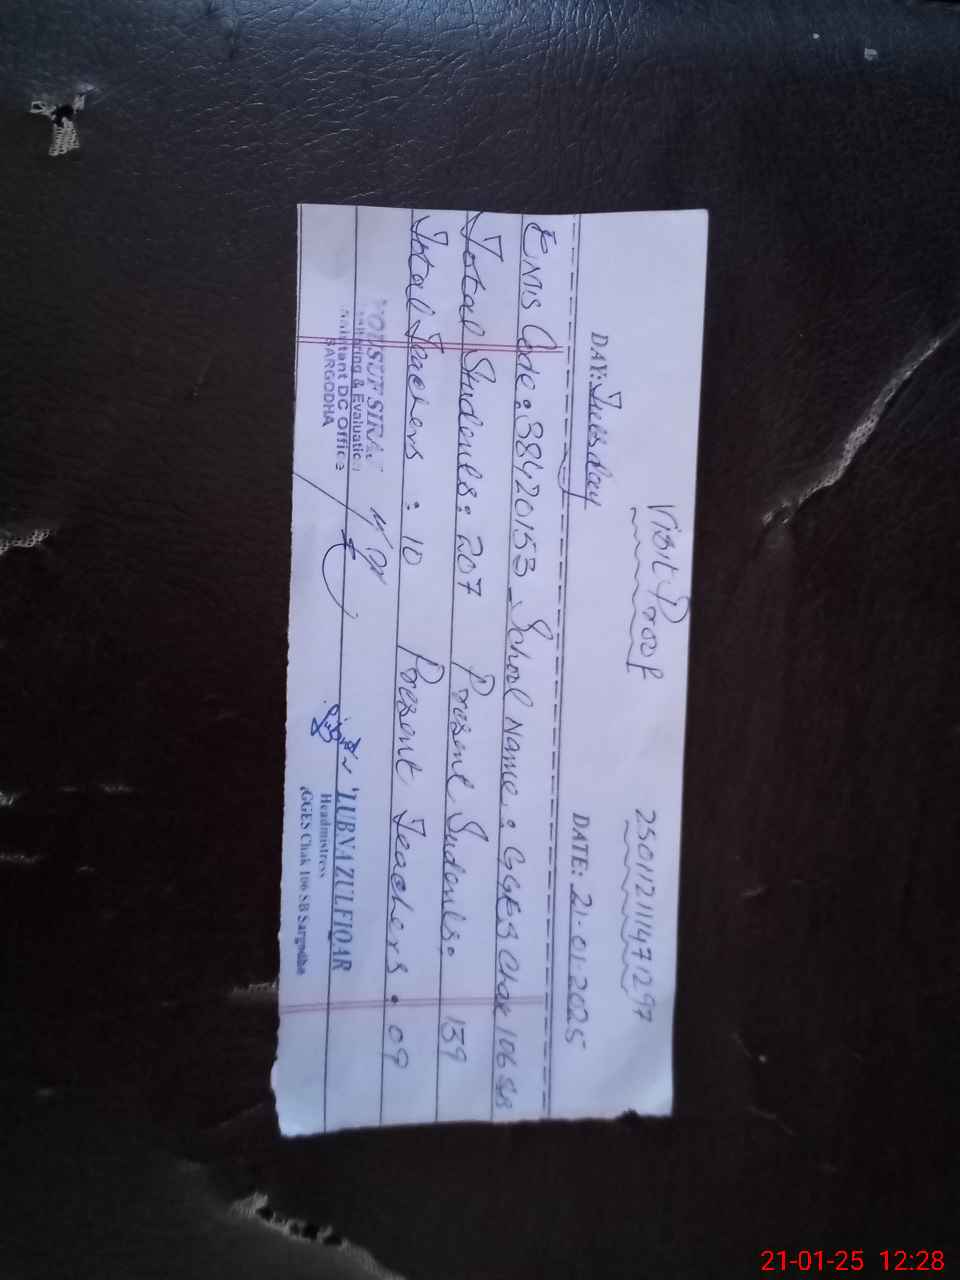 Visit Proof 2501121114712 97
DAY: Tuesday DATE: 21-01-2025
EMIS Code: 38420153 School Name: GGES Chak 106 SB
Total Students: 207 Present Sudents: 139
Total Teachers: 10 Present Teachers: 09
YOUSUF SIRAJ
Monitoring & Evaluation
Assistant DC Office
SARGODHA
LUBNA ZULFIQAR
Headmistress
GGES Chak 106 SB Sargodha
21-01-25 12:28